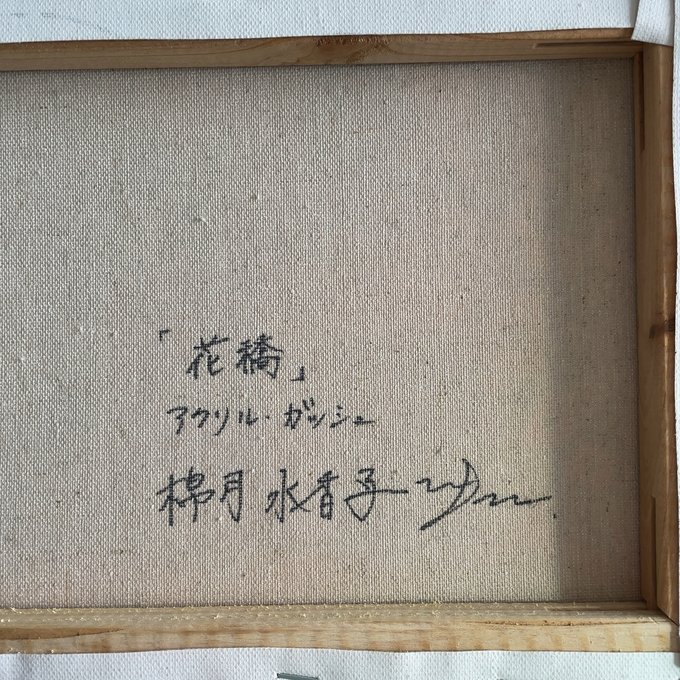 「花橋」
アクリル・ガッシュ
棉月 水香子